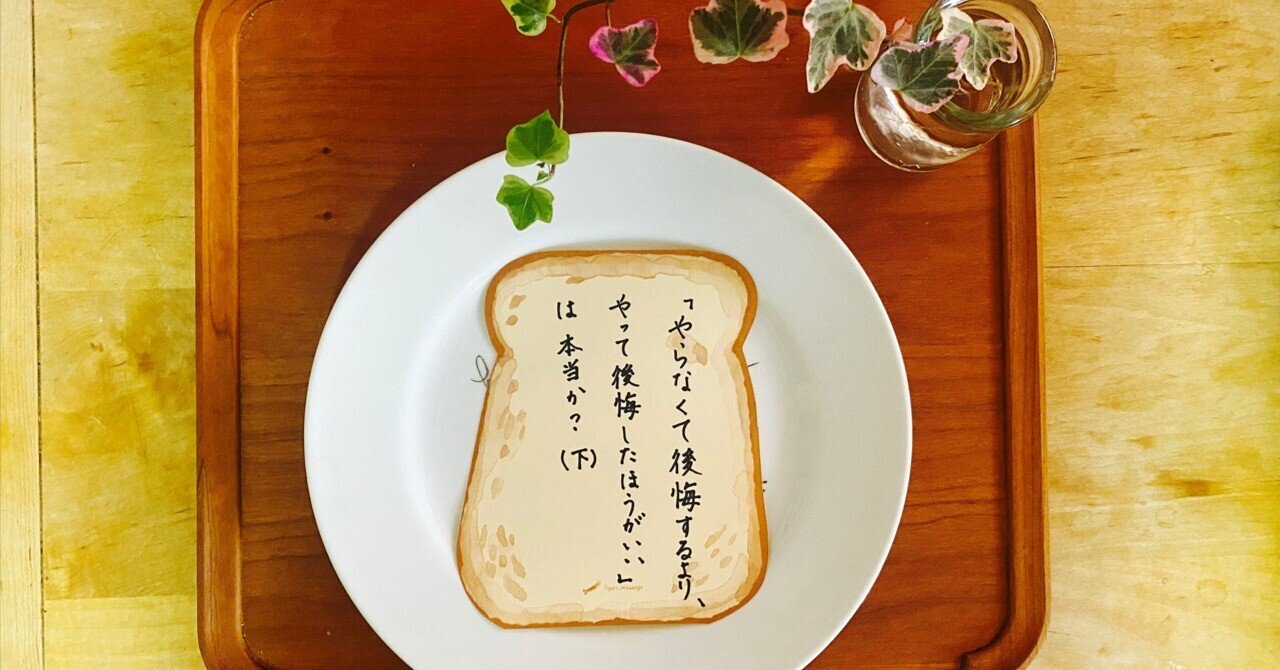 「やらなくて後悔するより、
やって後悔したほうがいい」
は本当か？（下）